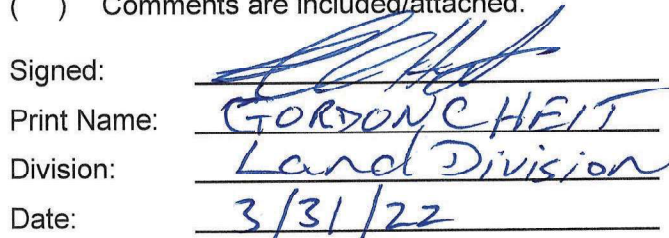 ( ) Comments are included/attached.
Signed:
Print Name: GORDON C HEIT
Division: Land Division
Date: 3/31/22